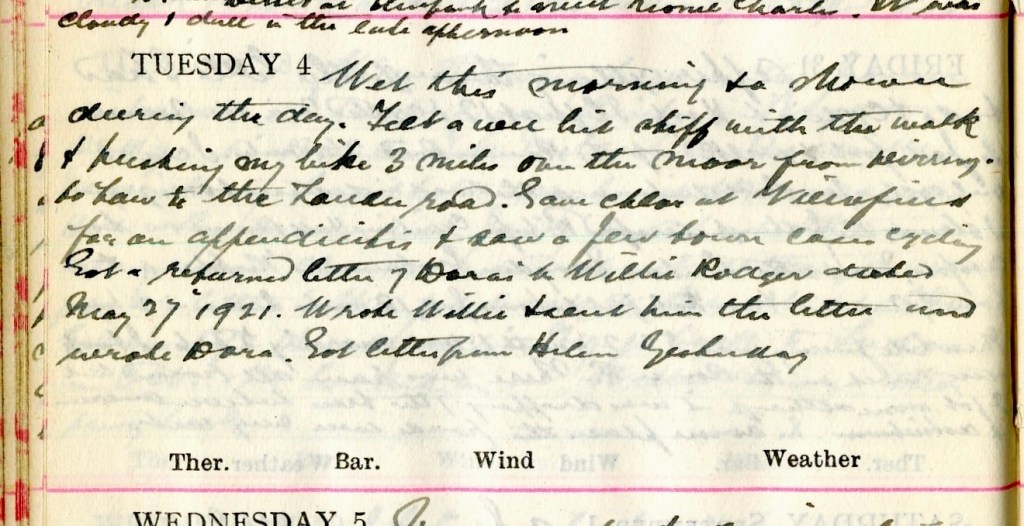 cloudy & dull in the late afternoon
TUESDAY 4 Wet this morning & a shower
during the day. Felt a wee bit stiff with the walk
& pushing my bike 3 miles over the moor from
to the Lauder road. Gave chlor at Viewfield
for an appendicitis & saw a few town cases cycling
Got a returned letter of Dora's to Willie Rodger dated
May 27 1921. Wrote Willie & sent him the letter and
wrote Dora. Got letter from Helen Yesterday
Ther. Bar. Wind Weather
WEDNESDAY 5